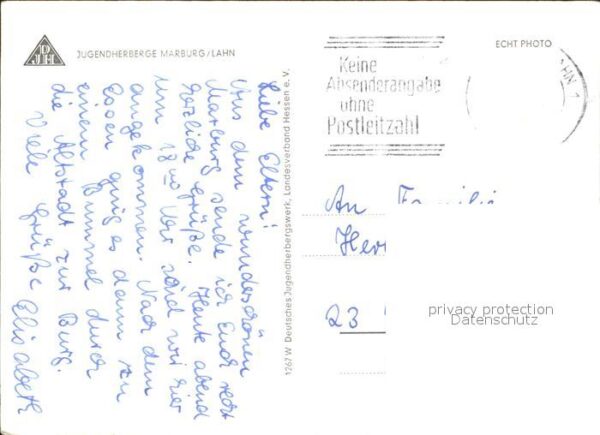 DJH
JUGENDHERBERGE MARBURG/LAHN
ECHT PHOTO
Keine
Absenderangabe
ohne
Postleitzahl
AHN 1
Liebe Eltern!
Aus dem wunderschönen
Marburg sende ich Euch recht
herzliche Grüße. Heute abend
um 18.00 Uhr sind wir hier
angekommen. Nach dem
Essen ging es dann zu
einem Bummel durch
die Altstadt zur Burg.
Viele Grüße Elisabeth
1267 W Deutsches Jugendherbergswerk, Landesverband Hessen e. V.
An F
Herr
23
privacy protection
Datenschutz